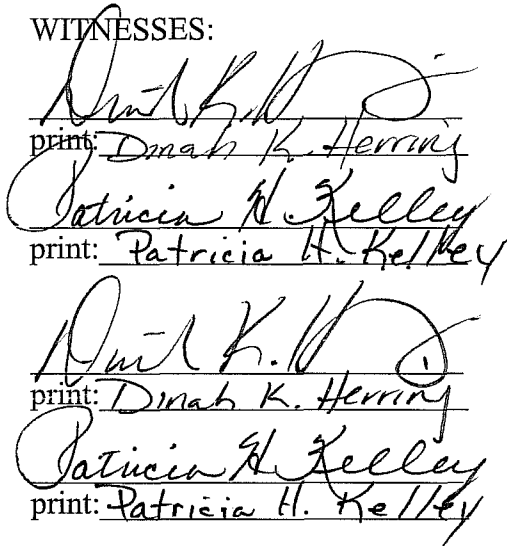 WITNESSES:
Dinah K. H
print: Dinah K Herring
Patricia H. Kelley
print: Patricia H. Kelley
Dinah K. H
print: Dinah K. Herring
Patricia H Kelley
print: Patricia H. Kelley